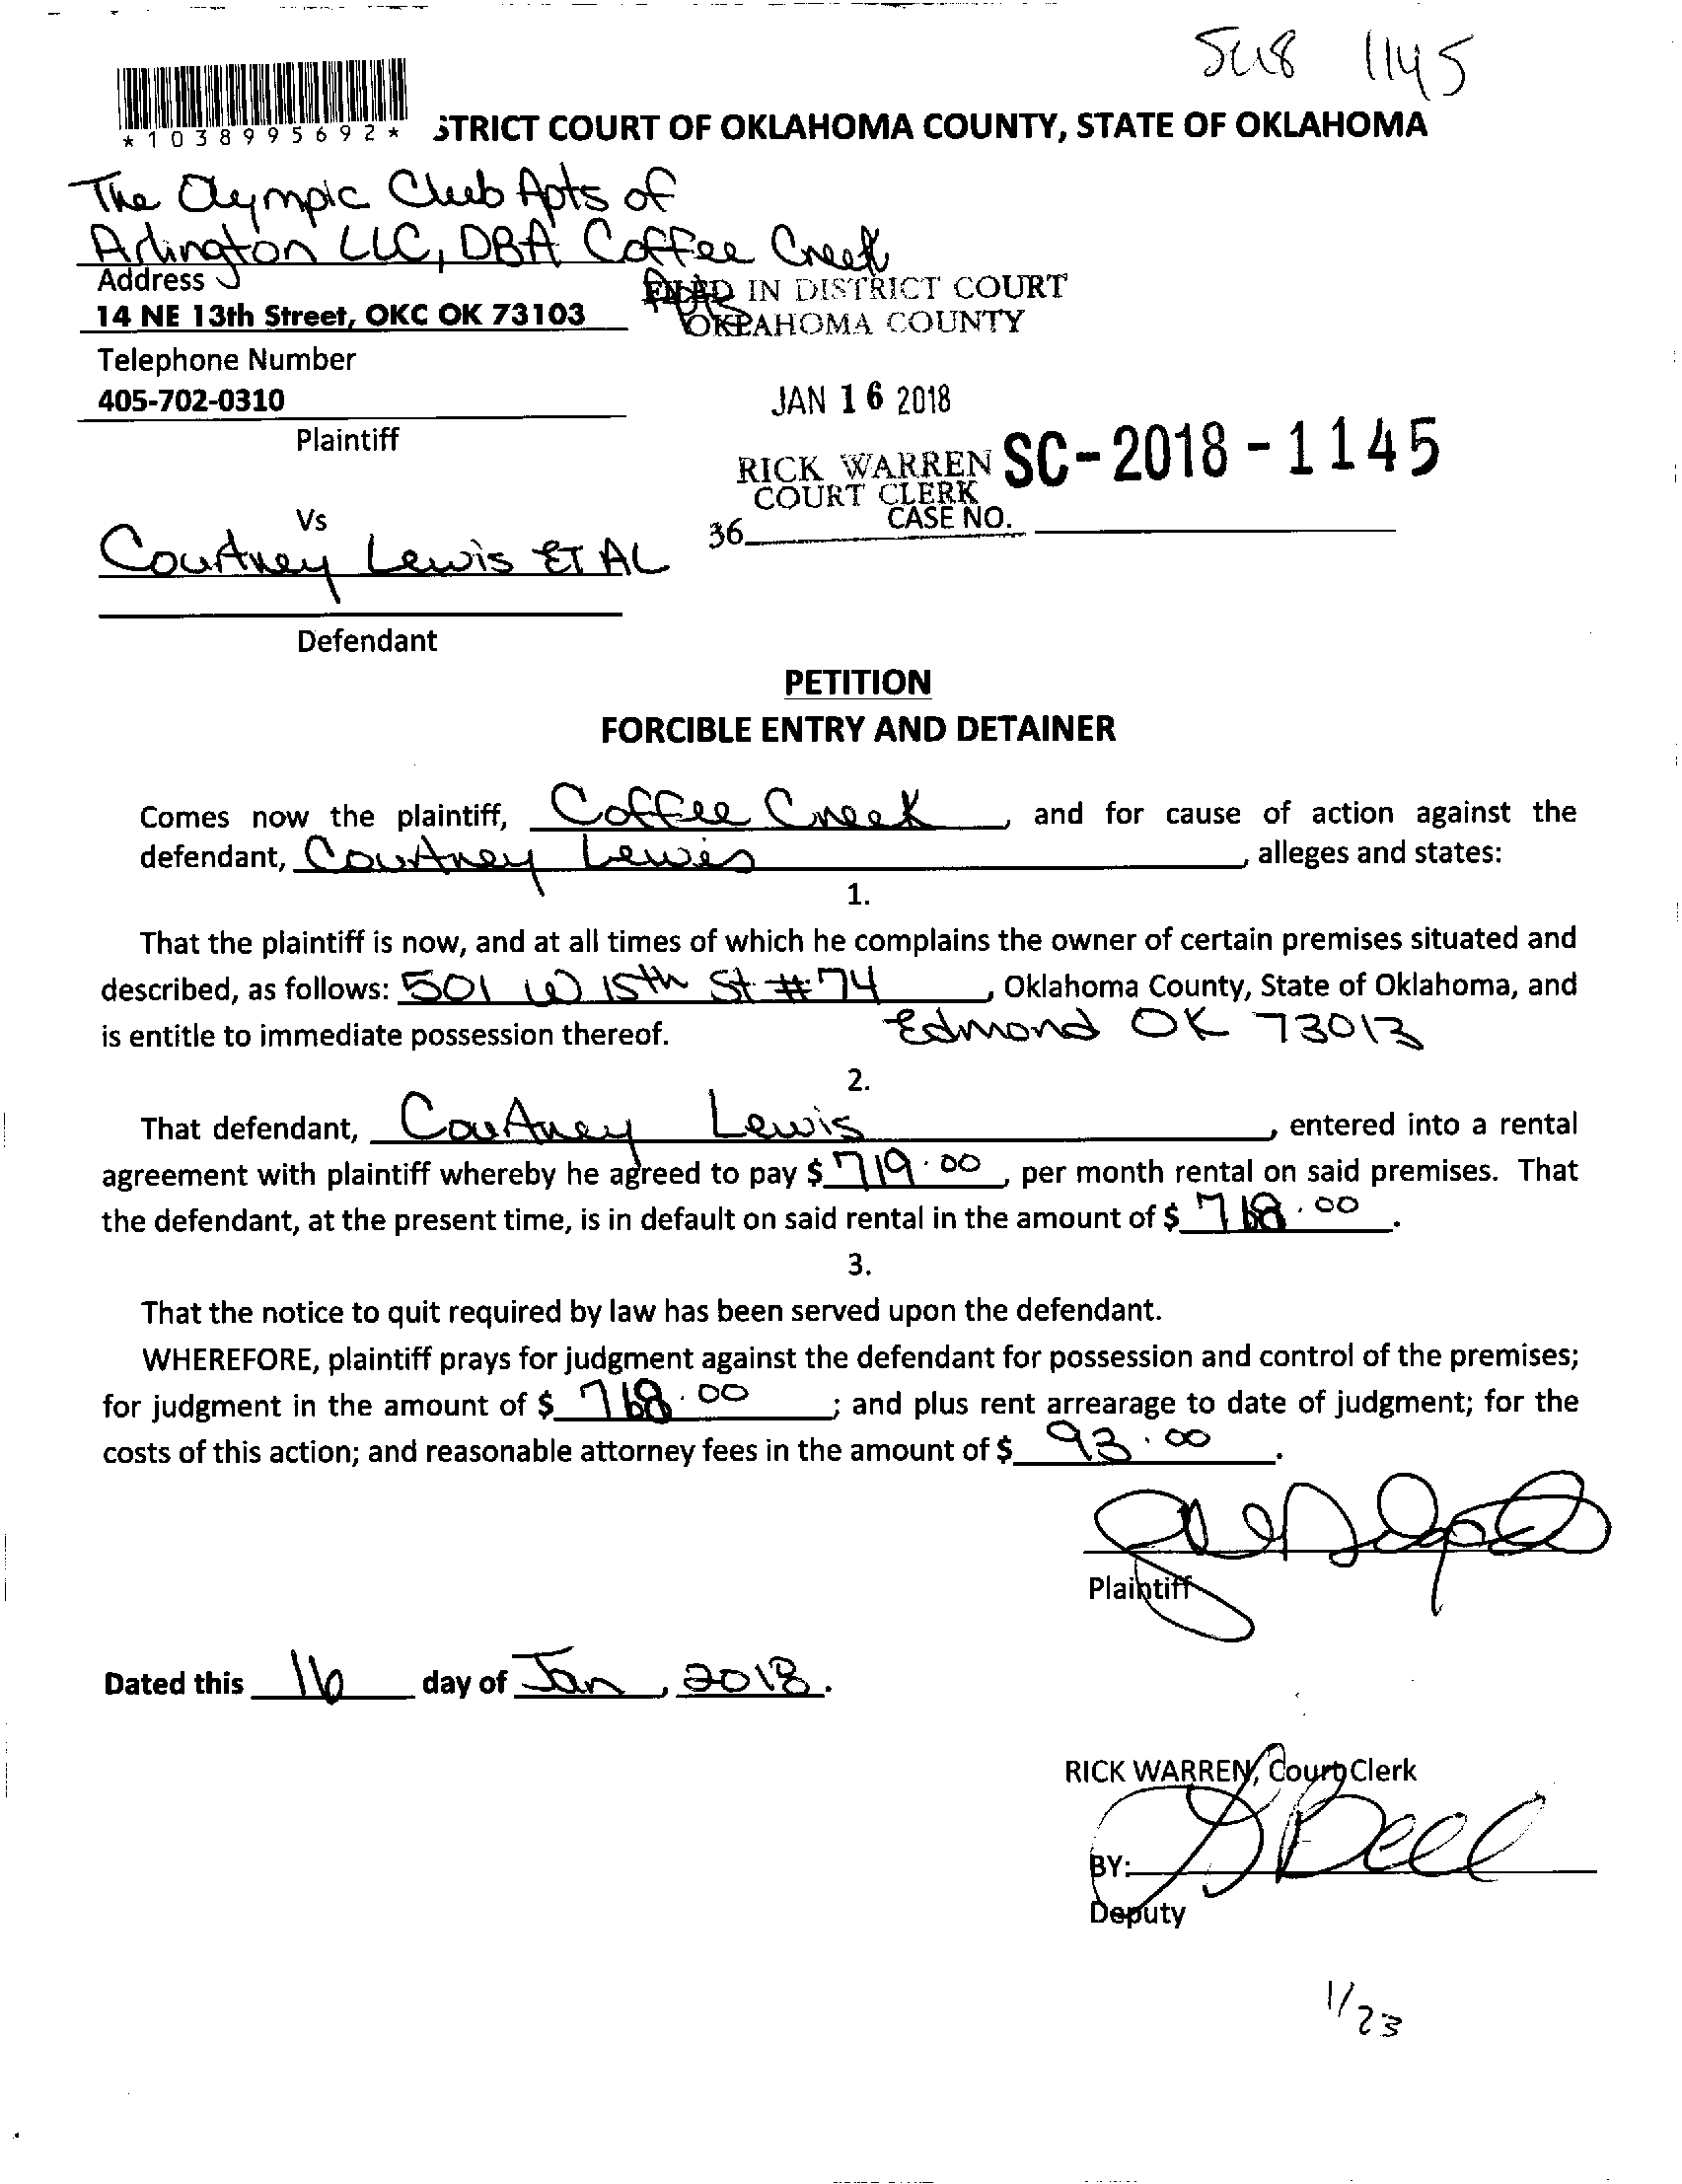 5418 1145
*1038995692*
STRICT COURT OF OKLAHOMA COUNTY, STATE OF OKLAHOMA
The Olympic Club Apts of
Arlington LLC, DBA Coffee Creek
Apts
Address
14 NE 13th Street, OKC OK 73103
FILED IN DISTRICT COURT
OKLAHOMA COUNTY
Telephone Number
405-702-0310
JAN 16 2018
Plaintiff
RICK WARREN
COURT CLERK
SC-2018-1145
Vs
36
CASE NO.
Courtney Lewis ET AL
Defendant
PETITION
FORCIBLE ENTRY AND DETAINER
Comes now the plaintiff, Coffee Creek, and for cause of action against the
defendant, Courtney Lewis, alleges and states:
1.
That the plaintiff is now, and at all times of which he complains the owner of certain premises situated and
described, as follows: 501 W 15th St #74, Oklahoma County, State of Oklahoma, and
is entitle to immediate possession thereof. Edmond OK 73013
2.
That defendant, Courtney Lewis, entered into a rental
agreement with plaintiff whereby he agreed to pay $ 719.00, per month rental on said premises. That
the defendant, at the present time, is in default on said rental in the amount of $ 768.00.
3.
That the notice to quit required by law has been served upon the defendant.
WHEREFORE, plaintiff prays for judgment against the defendant for possession and control of the premises;
for judgment in the amount of $ 768.00; and plus rent arrearage to date of judgment; for the
costs of this action; and reasonable attorney fees in the amount of $ 93.00.
Plaintiff
Dated this 16 day of Jan, 2018.
RICK WARREN, Court Clerk
BY: Bell
Deputy
1/23